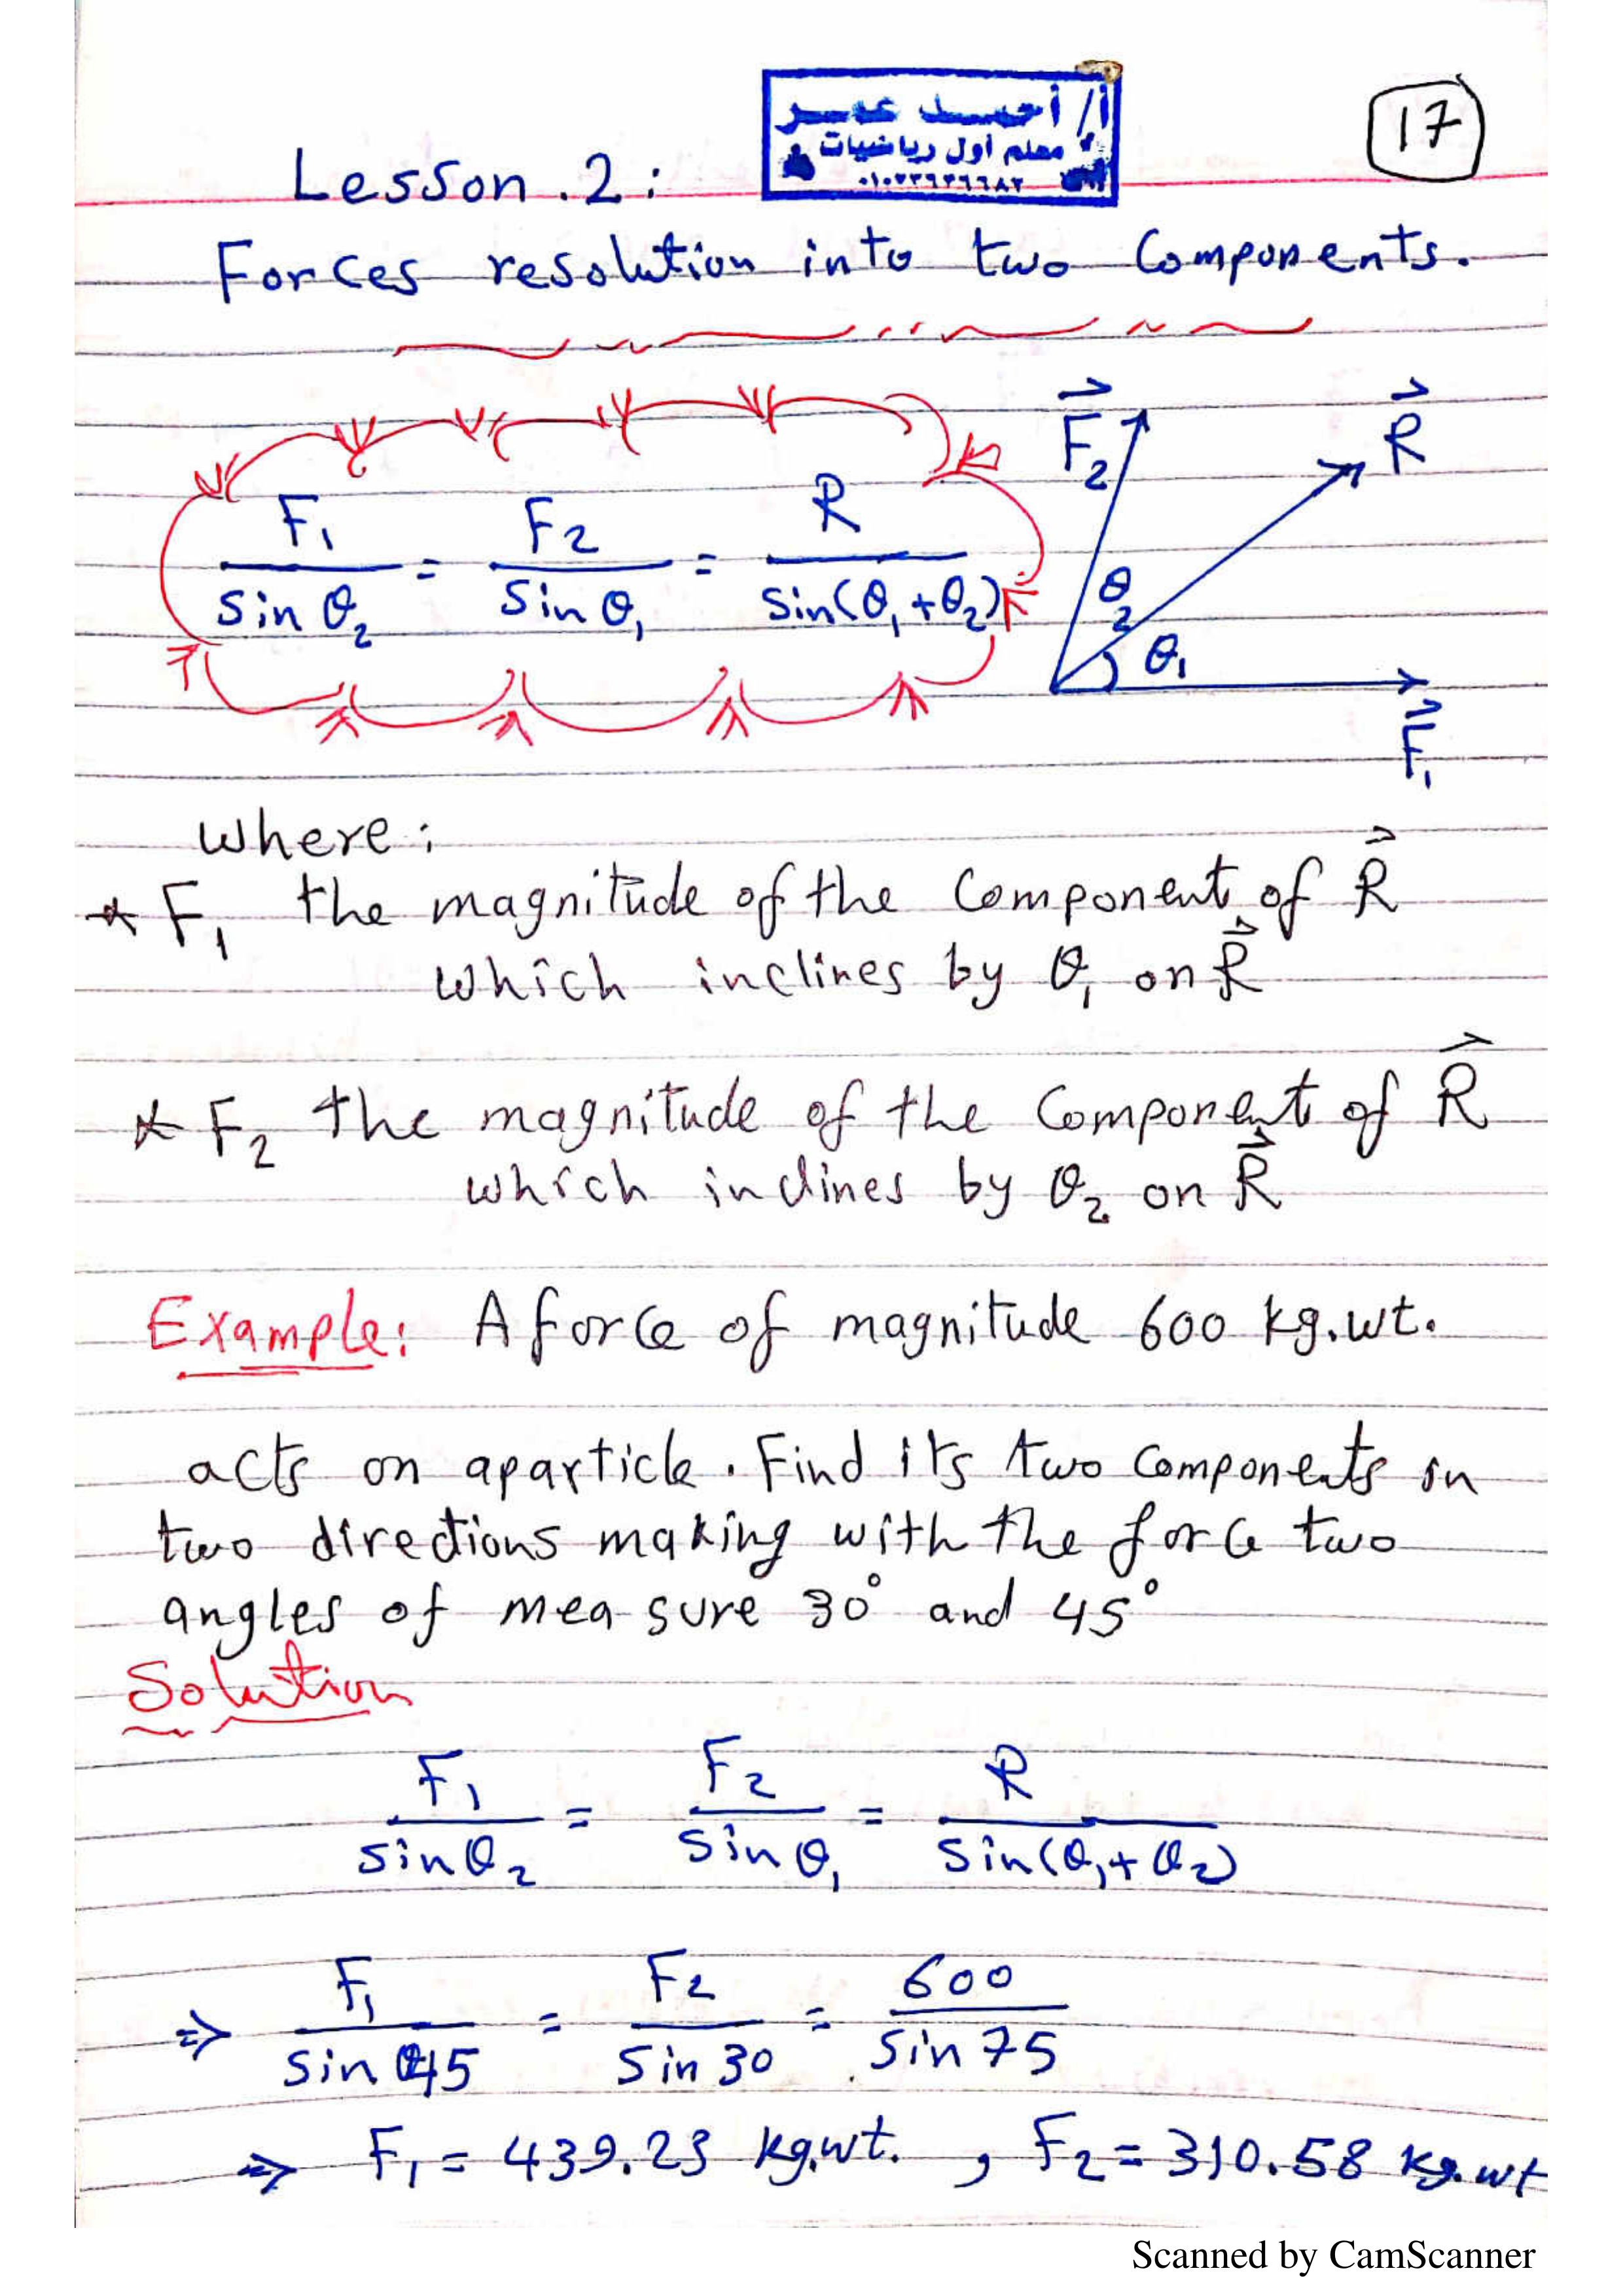 أ/ أحمد عمر
معلم أول رياضيات
17
Lesson .2:
Forces resolution into two Components.
F₁/sin θ₂ = F₂/sin θ₁ = R/sin(θ₁+θ₂)
F₂
R
θ₂
θ₁
F₁
where:
* F₁ the magnitude of the Component of R
which inclines by θ₁ on R
* F₂ the magnitude of the Component of R
which inclines by θ₂ on R
Example: A force of magnitude 600 kg.wt.
acts on aparticle. Find its two Components in
two directions making with the force two
angles of mea-sure 30° and 45°
Solution
F₁/sin θ₂ = F₂/sin θ₁ = R/sin(θ₁+θ₂)
⇒ F₁/sin 45 = F₂/sin 30 = 600/sin 75
⇒ F₁ = 439.23 kg.wt. , F₂ = 310.58 kg.wt
Scanned by CamScanner